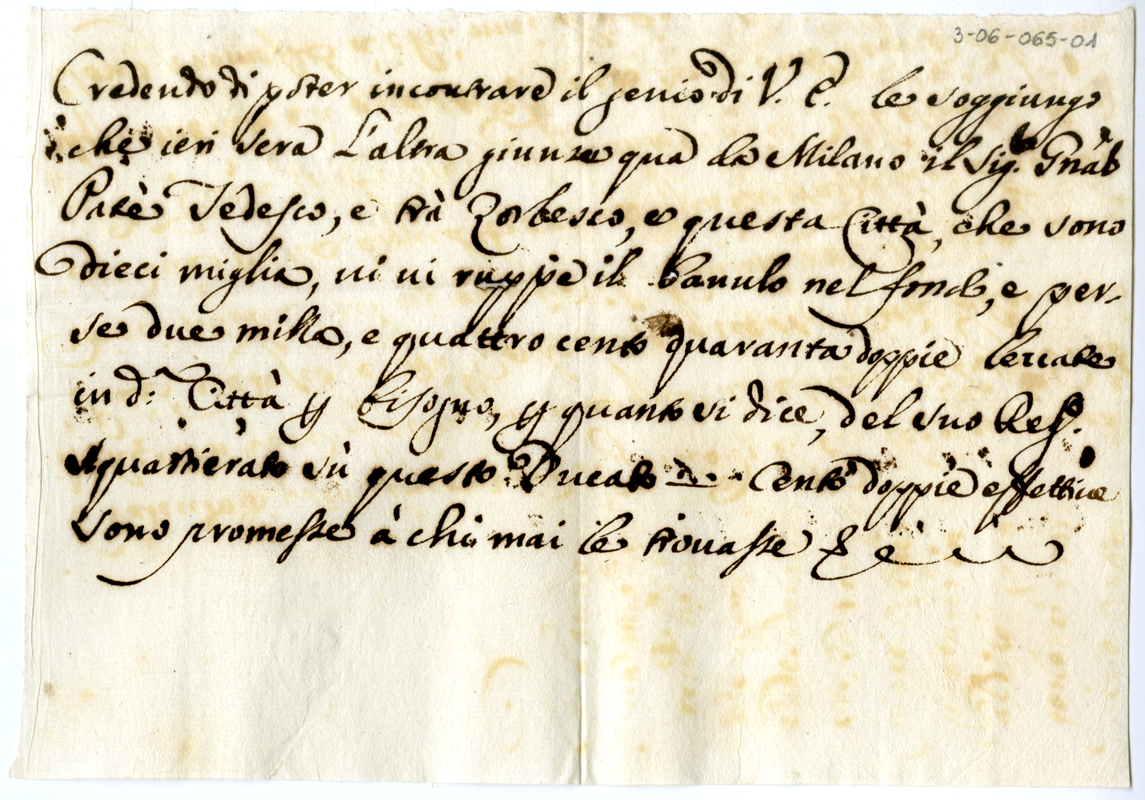 3-06-065-01
Credendo di poter incontrare il genio di V. E. le soggiungo
che ieri sera l'altra giunse quà da Milano il Sig.
Patè Tedesco, e trà Zorlesco, e questa Città, che sono
dieci miglia, vi si ruppe il baullo nel fondo, e per-
se due milla, e quattro cento quaranta doppie levate
in d.ª Città p bisogno, p quanto si dice, del suo Reg.
Aquartierato sù questo Ducato. Cento doppie effettive
sono promesse à chi mai le trovasse &